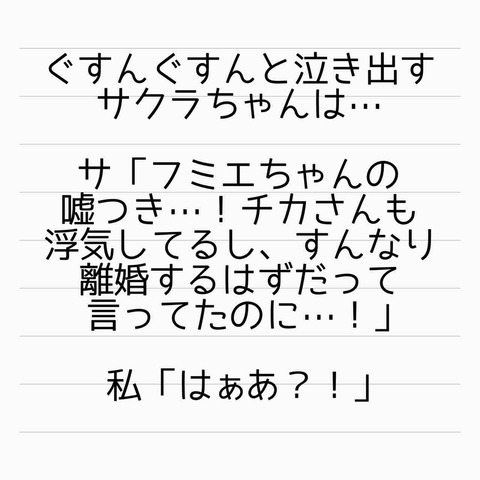 ぐすんぐすんと泣き出す
サクラちゃんは…
サ「フミエちゃんの
嘘つき…！チカさんも
浮気してるし、すんなり
離婚するはずだって
言ってたのに…！」
私「はぁあ？！」